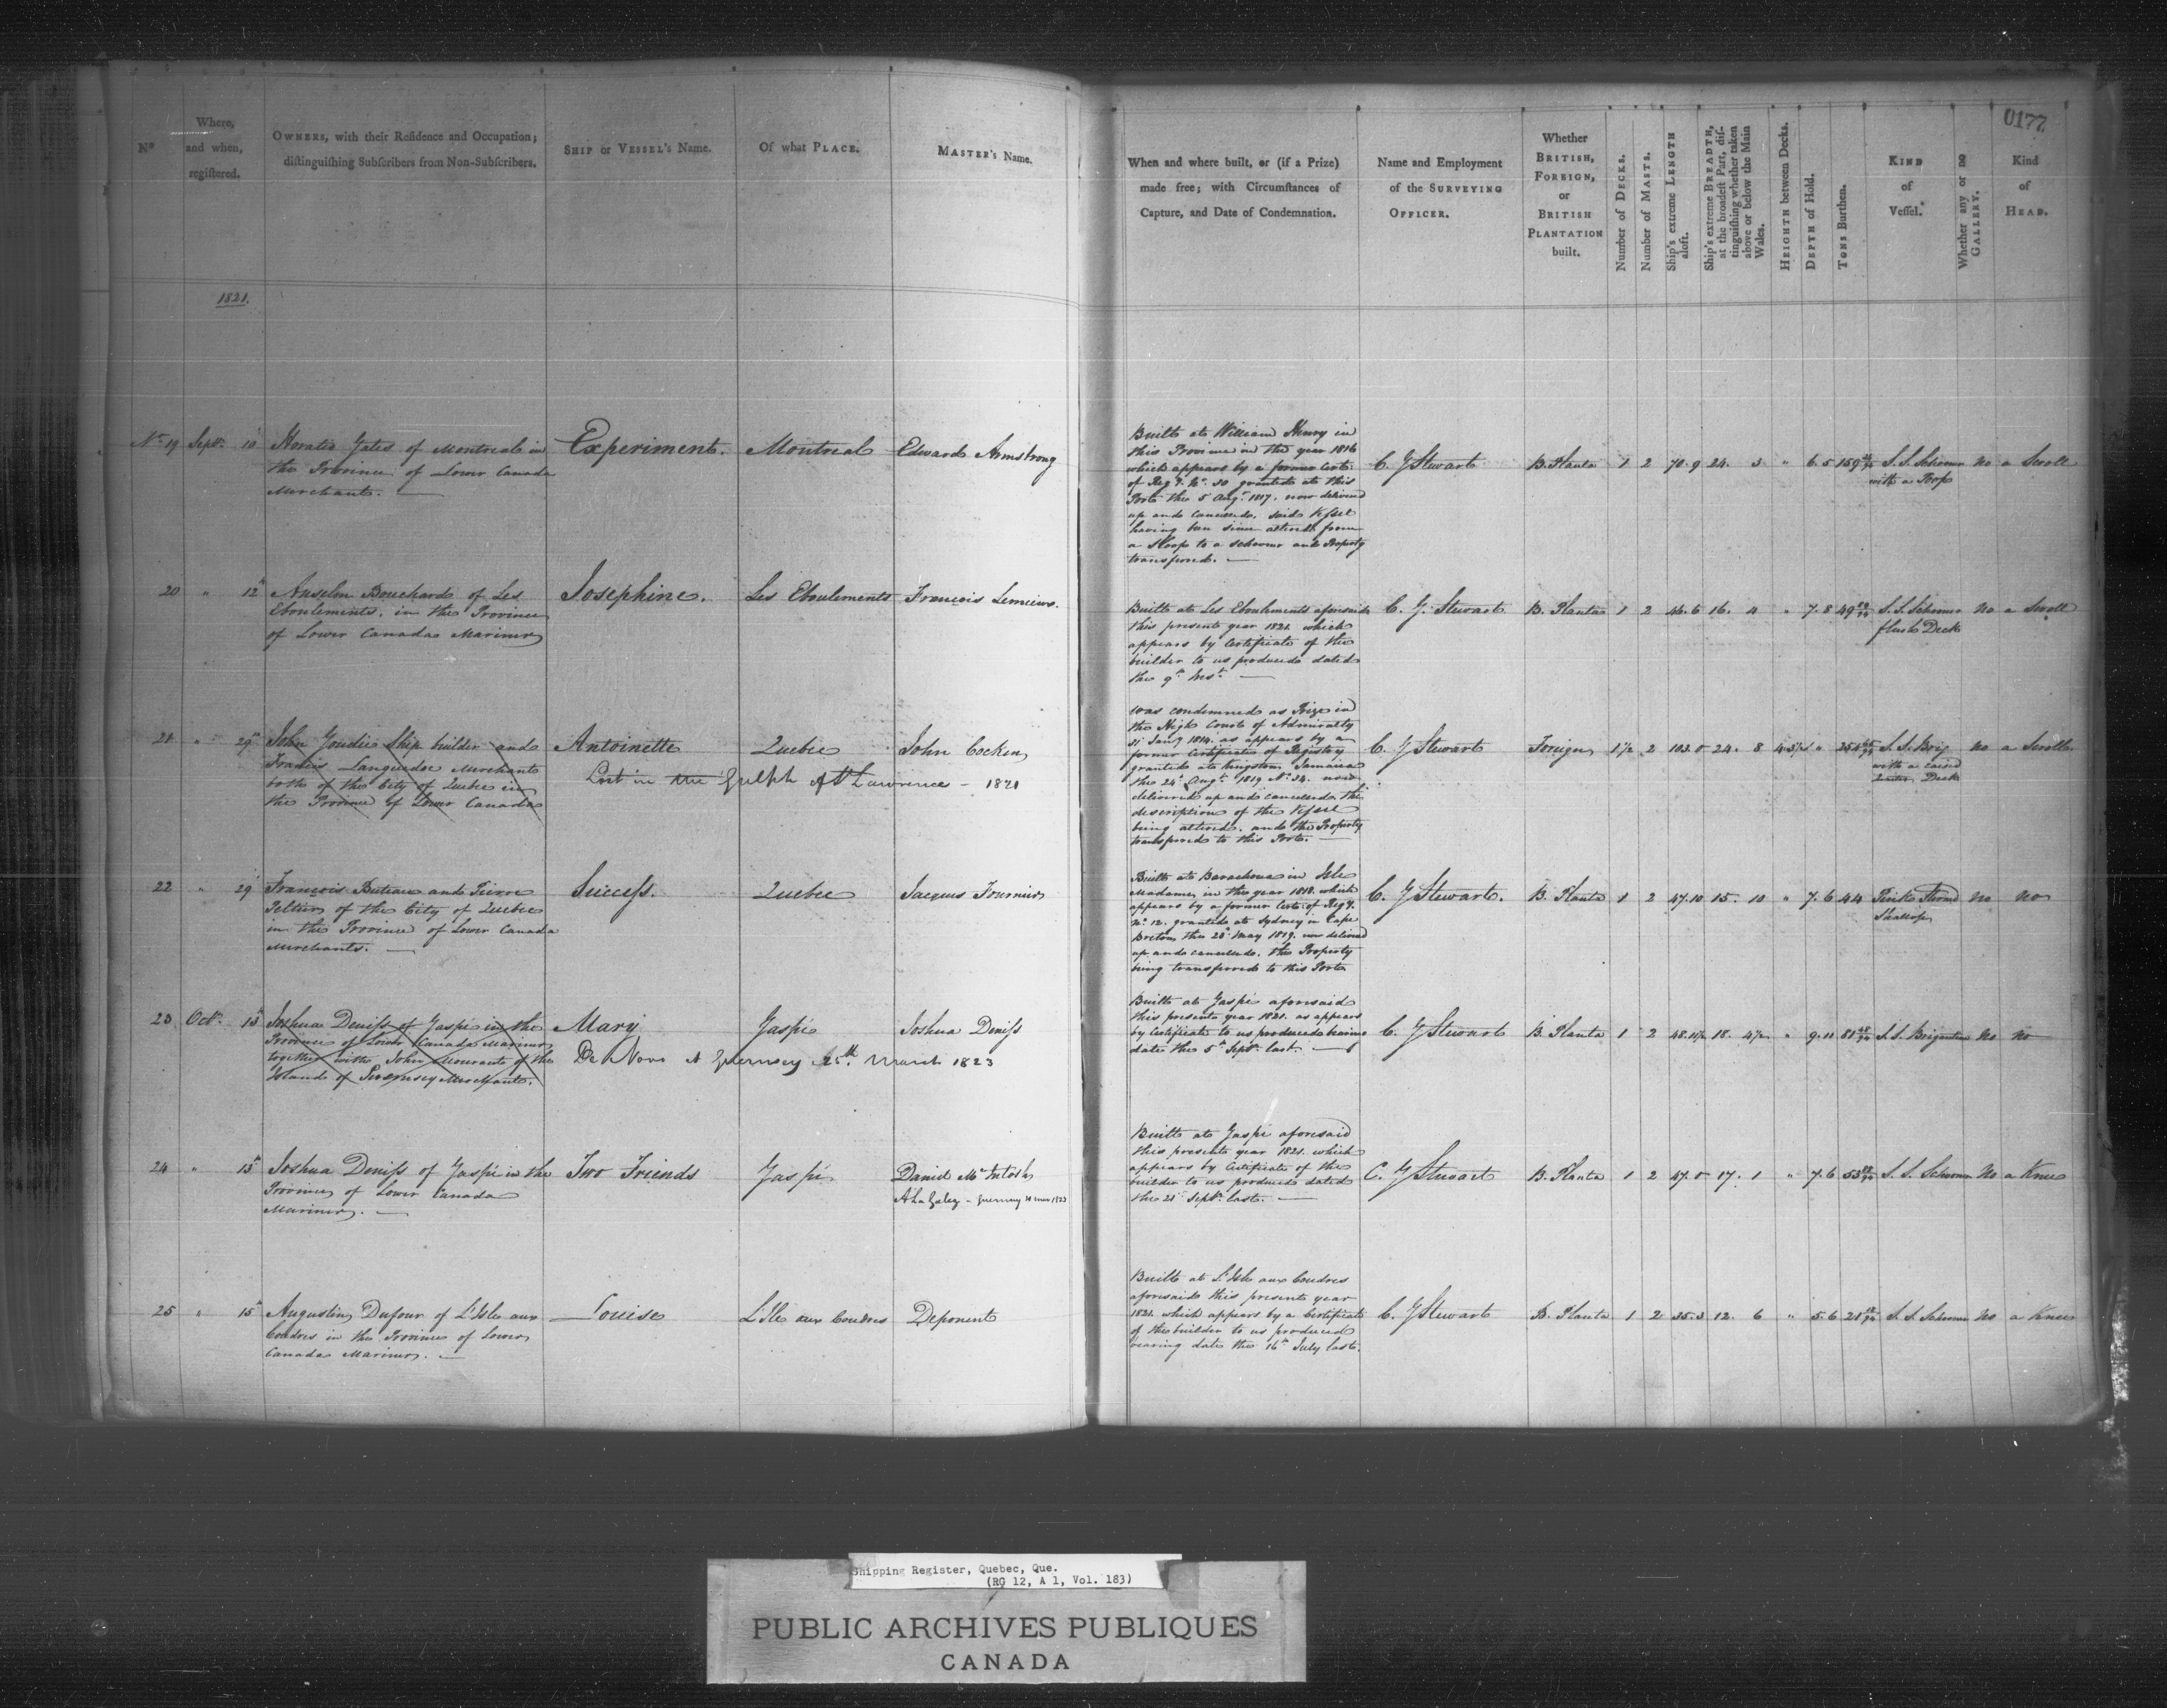 0177
Nº
Where,
and when,
regiſtered.
OWNERS, with their Reſidence and Occupation;
diſtinguiſhing Subſcribers from Non-Subſcribers.
SHIP or VESSEL's Name.
Of what PLACE.
MASTER's Name.
When and where built, or (if a Prize)
made free; with Circumſtances of
Capture, and Date of Condemnation.
Name and Employment
of the SURVEYING
OFFICER.
Whether
BRITISH,
FOREIGN,
or
BRITISH
PLANTATION
built.
Number of DECKS.
Number of MASTS.
Ship's extreme LENGTH
aloft.
Ship's extreme BREADTH,
at the broadeſt Part, diſ-
tinguiſhing whether taken
above or below the Main
Wales.
HEIGHTH between Decks.
DEPTH of Hold.
TONS Burthen.
KIND
of
Veſſel.
Whether any or no
GALLERY.
Kind
of
HEAD.
1821.
Nº 19 Septr 10
Horatio Yates of Montreal in
the Province of Lower Canada
Merchant.
Experiment. Montreal Edward Armstrong
Built at William Henry in
this Province in the year 1816
which appears by a former Certe
of Regy. Nº. 30 granted at this
Port the 5 Augt. 1817. now delivered
up and cancelled. said Veſsel
having been since altered from
a Sloop to a schooner and Property
transferred.
C. G Stewart B. Planta 1 2 70.9 24. 3 " 6.5 159 S. S. Schooner no a Scroll
with a Poop
20 " 12
Anselm Bouchard of Les
Eboulements. in the Province
of Lower Canada Mariner
Josephine. Les Eboulements François Lemieux.
Built at Les Eboulements aforesaid
this present year 1821. which
appears by Certificate of the
builder to us produced dated
the 9th Inst.
C. G. Stewart B. Planta 1 2 46.6 16. 4 " 7.8 49 S. S. Schooner no a Scroll
flush Deck
21 " 29
John Goudie Ship builder and
Francis Languedoc Merchant
both of the City of Quebec in
the Province of Lower Canada
Antoinette Quebec John Cocken
Lost in the Gulph St Lawrence - 1821
was condemned as Prize in
the High Court of Admiralty
31 Jany 1814. as appears by a
former Certificate of Registry
granted at Kingston Jamaica
the 24 Augt 1819 Nº 34. now
delivered up and cancelled the
description of the Veſsel
being altered. and the Property
transferred to this Port.
C. G Stewart Foreign 1½ 2 102. 24. 8 S. S. Brig no a Scroll
with a raised
Quarter Deck
22 " 29
François Buteau and Pierre
Pelletier of the City of Quebec
in the Province of Lower Canada
Merchants.
Succeſs. Quebec Jacques Fournier
Built at Barachoua in Isle
Madame, in the year 1818. which
appears by a former Certe of Regy.
Nº 12. granted at Sydney in Cape
Breton the 28 May 1819. now delivered
up and cancelled. the Property
being transferred to this Port
C. G Stewart. B. Planta 1 2 47.10 15. 10 " 7.6 44 Pink Sternd no no
Shallop
23 Octr. 13
Joshua Deniſs of Gaspé in the
Province of Lower Canada Mariner
together with John Mourant of the
Island of Guernsey Merchant.
Mary Gaspé Joshua Deniſs
De Novo At Guernsey 25th. March 1823
Built at Gaspé aforesaid
this present year 1821. as appears
by Certificate to us produced bearing
date the 5th Septr. last.
C. G Stewart B. Planta 1 2 48.11½ 18. 4½ " 9.11 81 S. S. Brigantine no no
24 " 13
Joshua Deniſs of Gaspé in the
Province of Lower Canada
Mariner.
Two Friends Gaspé Daniel McIntosh
Built at Gaspé aforesaid
this present year 1821. which
appears by Certificate of the
builder to us produced dated
the 21 Septr. last.
C. G Stewart B. Planta 1 2 47. 17. 1 " 7.6 53 S. S. Schooner no a Knee
25 " 15
Augustin Dufour of L'Isle aux
Coudres in the Province of Lower
Canada Mariner.
Louise L'Isle aux Coudres Deponent
Built at L'Isle aux Coudres
aforesaid this present year
1821. which appears by a Certificate
of the builder to us produced
bearing date the 16th July last.
C. G Stewart B. Planta 1 2 35.3 12. 6 " 5.6 21 S. S. Schooner no a Knee
Shipping Register, Quebec, Que.
(RG 12, A 1, Vol. 183)
PUBLIC ARCHIVES PUBLIQUES
CANADA